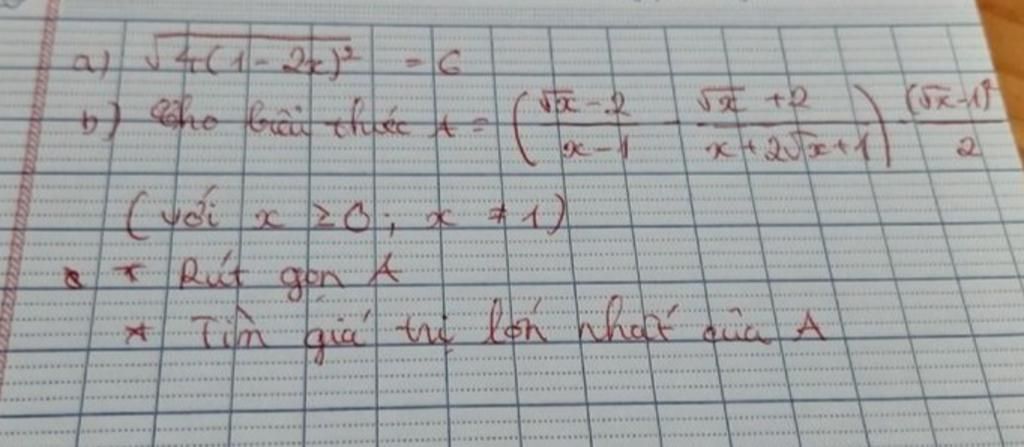 a) √4(1-2x)² = 6
b) Cho biểu thức A = (√x - 2 / x - 1 - √x + 2 / x + 2√x + 1) (√x - 1)² / 2
(với x ≥ 0; x ≠ 1)
* Rút gọn A
* Tìm giá trị lớn nhất của A